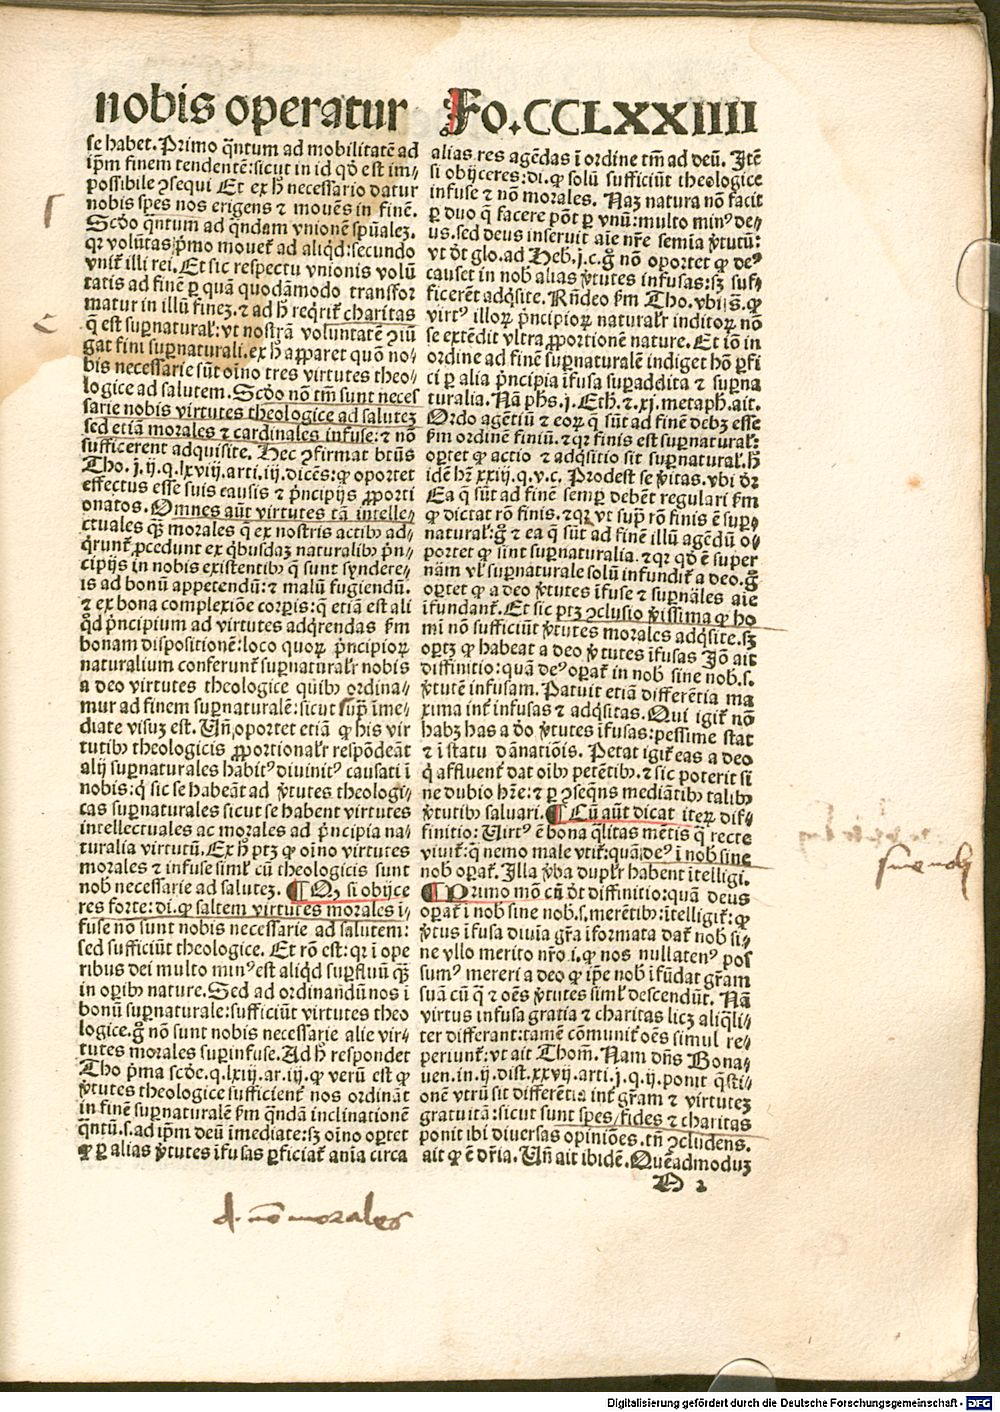 nobis operatur
Fo.CCLXXIIII
se habet. Primo q̄ntum ad mobilitatē ad
ip̄m finem tendentē: sicut in id qd̄ est im-
possibile ꝯsequi Et ex h̄ necessario datur
nobis spes nos erigens ⁊ mouēs in finē.
Scd̄o q̄ntum ad q̄ndam vnionē spūalez.
qꝛ volūtas p̄mo mouet᷑ ad aliqd̄: secundo
vnit᷑ illi rei. Et sic respectu vnionis volū
tatis ad finē ꝑ quā quodāmodo transfor
matur in illū finez. ⁊ ad h̄ reqrit᷑ charitas
q̄ est suꝑnatural᷑: vt nostrā voluntatē ꝯiū
gat fini suꝑnaturali. ex h̄ apparet quō no-
bis necessarie sūt oīno tres virtutes theo-
logice ad salutem. Scd̄o nō tm̄ sunt neces
sarie nobis virtutes theologice ad salutez
sed etiā morales ⁊ cardinales infuse: ⁊ nō
sufficerent adquisite. Hec ꝯfirmat btūs
Tho. j. ij. q. lxviij. arti. iij. dicēs: ꝙ oportet
effectus esse suis causis ⁊ p̄ncipijs ꝓporti
onatos. Omnes aūt virtutes tā intelle-
ctuales q̄ꝫ morales q̄ ex nostris actibꝰ ad-
q̄runt᷑ ꝓcedunt ex q̄busdaz naturalibꝰ p̄n-
cipijs in nobis existentibꝰ q̄ sunt syndere-
is ad bonū appetendū: ⁊ malū fugiendū.
⁊ ex bona complexiōe corꝑis: q̄ etiā est ali
q̄d p̄ncipium ad virtutes adq̄rendas ẜm
bonam dispositionē: loco quoꝝ p̄ncipioꝝ
naturalium conferunt᷑ suꝑnatural᷑r nobis
a deo virtutes theologice quibꝰ ordina-
mur ad finem suꝑnaturalē: sicut suꝑ īme-
diate visuz est. Vn̄ oportet etiā ꝙ his vir
tutibꝰ theologicis ꝓportional᷑r respōdeāt
alij suꝑnaturales habitꝰ diuinitꝰ causati ī
nobis: q̄ sic se habeāt ad v̄tutes theologi-
cas suꝑnaturales sicut se habent virtutes
intellectuales ac morales ad p̄ncipia na-
turalia virtutū. Ex h̄ ptꝫ ꝙ oīno virtutes
morales ⁊ infuse siml᷑ cū theologicis sunt
nob necessarie ad salutez. ¶ Qꝫ si obijce
res forte: di. ꝙ saltem virtutes morales ī-
fuse nō sunt nobis necessarie ad salutem:
sed sufficiūt theologice. Et rō est: qꝛ ī ope
ribus dei multo minꝰ est aliqd̄ suꝑfluū q̄ꝫ
in oꝑibꝰ nature. Sed ad ordinandū nos ī
bonū suꝑnaturale: sufficiūt virtutes theo
logice. g̊ nō sunt nobis necessarie alie vir-
tutes morales suꝑinfuse. Ad h̄ respondet
Tho p̄ma scd̄e. q. lxiij. ar. iij. ꝙ verū est ꝙ
v̄tutes theologice sufficient᷑ nos ordināt
in finē suꝑnaturalē ẜm q̄ndā inclinationē
q̄ntū. s. ad ip̄m deū īmediate: sꝫ oīno oꝑtet
ꝙ ꝑ alias v̄tutes īfusas ꝑficiat᷑ aīa circa
alias res agēdas ī ordine tm̄ ad deū. Itē
si obijceres: di. ꝙ solū sufficiūt theologice
infuse ⁊ nō morales. Naꝫ natura nō facit
ꝑ duo q̄ facere pōt ꝑ vnū: multo minꝰ de-
us. sed deus inseruit aīe nr̄e semīa v̄tutū:
vt d̄t glo. ad Heb. j. c. g̊ nō oportet ꝙ deꝰ
causet in nob alias v̄tutes infusas: sꝫ suf-
ficerēt adqsite. Rn̄deo ẜm Tho. vbi s̄. ꝙ
virtꝰ illoꝝ p̄ncipioꝝ natural᷑r inditoꝝ nō
se extēdit vltra ꝓportionē nature. Et iō in
ordine ad finē suꝑnaturalē indiget hō ꝑfi
ci ꝑ alia p̄ncipia īfusa suꝑaddita ⁊ suꝑna
turalia. Nā ph̄s. j. Eth. ⁊ xj. metaph. ait.
Ordo agētiū ⁊ eoꝝ q̄ sūt ad finē debꝫ esse
ẜm ordinē finiū. ⁊ qꝛ finis est suꝑnatural᷑:
oꝑtet ꝙ actio ⁊ adqsitio sit suꝑnatural᷑. h̄
idē hr̄ xxiij. q. v. c. Prodest se v̄itas. vbi d̄r
Ea q̄ sūt ad finē semꝑ debēt regulari ẜm
ꝙ dictat rō finis. ⁊ qꝛ vt sup̄ rō finis ē suꝑ-
natural᷑: g̊ ⁊ ea q̄ sūt ad finē illū agēdū o-
portet ꝙ sint suꝑnaturalia. ⁊ qꝛ qd̄ ē super
nām vl᷑ suꝑnaturale solū infundit᷑ a deo. g̊
oꝑtet ꝙ a deo v̄tutes īfuse ⁊ suꝑnāles aīe
īfundant᷑. Et sic ptꝫ ꝯclusio v̄issima ꝙ ho
mī nō sufficiūt v̄tutes morales adqsite. sꝫ
oꝑtꝫ ꝙ habeat a deo v̄tutes īfusas Jō ait
diffinitio: quā deꝰ oꝑat᷑ in nob sine nob. s.
v̄tutē infusam. Patuit etiā differētia ma
xima int᷑ infusas ⁊ adqsitas. Qui igit᷑ nō
habꝫ has a do v̄tutes īfusas: pessime stat
⁊ ī statu dānatiōis. Petat igit᷑ eas a deo
q̄ affluent᷑ dat oībꝰ petētibꝰ. ⁊ sic poterit si
ne dubio hr̄e: ⁊ ꝑ ꝯseq̄ns mediātibꝰ talibꝰ
v̄tutibꝰ saluari. ¶ Cū aūt dicat iteꝝ dif-
finitio: Virtꝰ ē bona q̄litas mētis q̄ recte
viuit᷑: q̄ nemo male vtit᷑: quā deꝰ ī nob sine
nob oꝑat᷑. Illa v̄ba dupl᷑r habent ītelligi.
¶ Primo mō cū d̄t diffinitio: quā deus
oꝑat᷑ ī nob sine nob. s. merētibꝰ: ītelligit᷑: ꝙ
v̄tus īfusa diuīa gr̄a īformata dat᷑ nob si-
ne vllo merito nr̄o. i. ꝙ nos nullatenꝰ pos
sumꝰ mereri a deo ꝙ ip̄e nob īfūdat gr̄am
suā cū q̄ ⁊ oēs v̄tutes siml᷑ descendūt. Nā
virtus infusa gratia ⁊ charitas licꝫ aliq̄li-
ter differant: tamē cōmunit᷑ oēs simul re-
periunt᷑: vt ait Thom. Nam dn̄s Bona-
uen. in. ij. dist. xxvij. arti. j. q. ij. ponit q̄sti-
onē vtrū sit differētia int᷑ gr̄am ⁊ virtutez
gratuitā: sicut sunt spes/fides ⁊ charitas
ponit ibi diuersas opiniōes. tn̄ ꝯcludens.
ait ꝙ ē dr̄ia. Vn̄ ait ibidē. Quēadmoduꝫ
d. nō morales